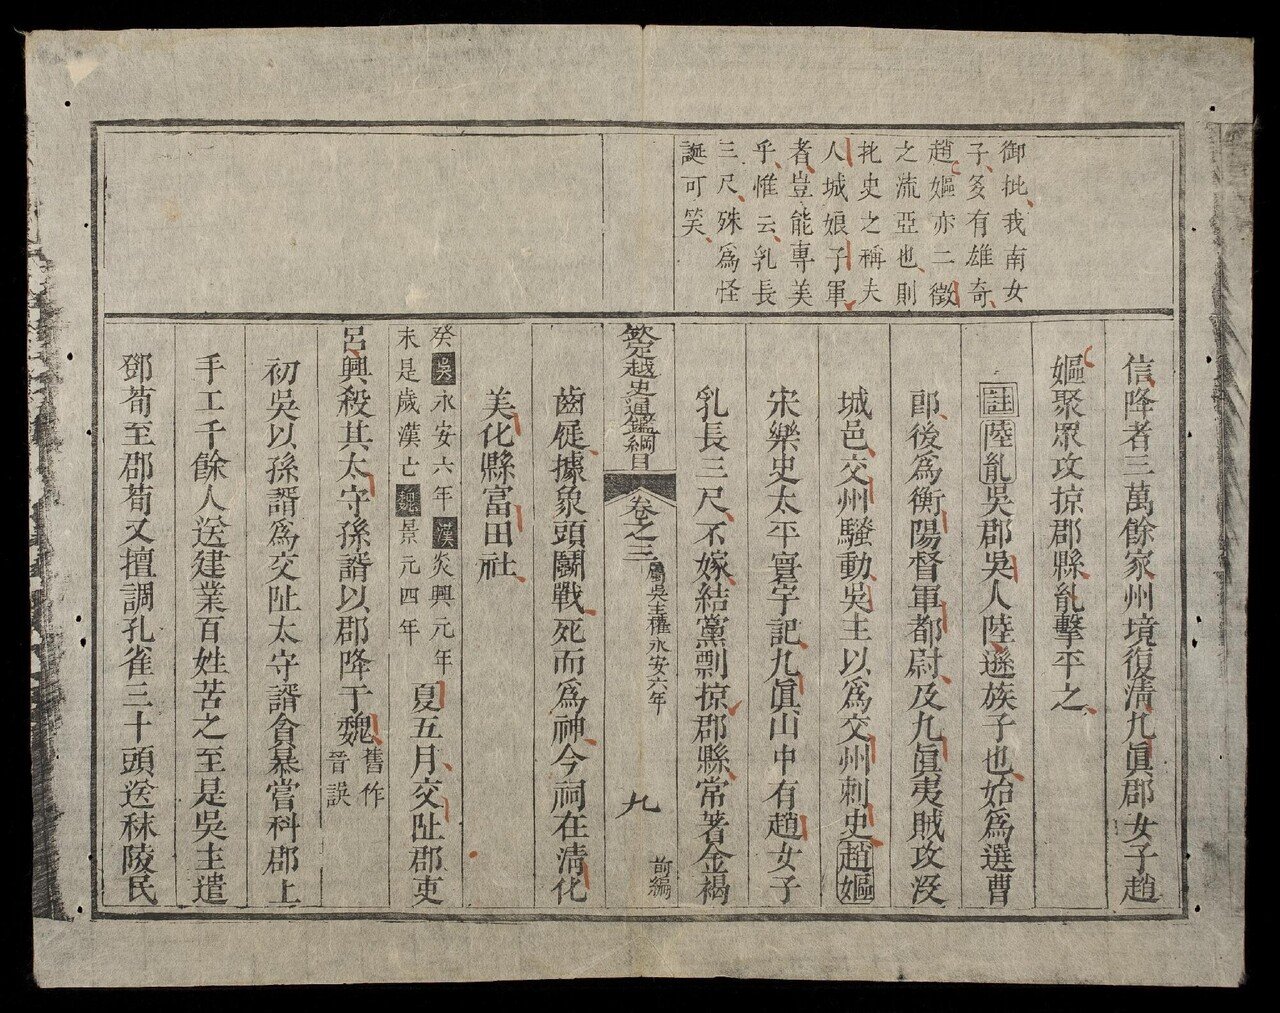 御批我南女
子多有雄奇
趙嫗亦二徵
之流亞也則
批史之稱夫
人城娘子軍
者豈能專美
乎惟云乳長
三尺殊爲怪
誕可笑
信降者三萬餘家州境復清九眞郡女子趙
嫗聚眾攻掠郡縣胤擊平之
註陸胤吳郡吳人陸遜族子也始爲選曹
郎後爲衡陽督軍都尉及九眞夷賊攻沒
城邑交州騷動吳主以爲交州刺史趙嫗
宋樂史太平寰宇記九眞山中有趙女子
乳長三尺不嫁結黨剽掠郡縣常著金褐
欽定越史通鑑綱目 卷之三 屬吳主權永安六年 九 前編
齒屣據象頭鬭戰死而爲神今祠在淸化
美化縣富田社
癸吳永安六年漢炎興元年
未是歲漢亡魏景元四年
夏五月交阯郡吏
呂興殺其太守孫諝以郡降于魏
舊作
晉誤
初吳以孫諝爲交阯太守諝貪暴嘗科郡上
手工千餘人送建業百姓苦之至是吳主遣
鄧荀至郡荀又擅調孔雀三十頭送秣陵民